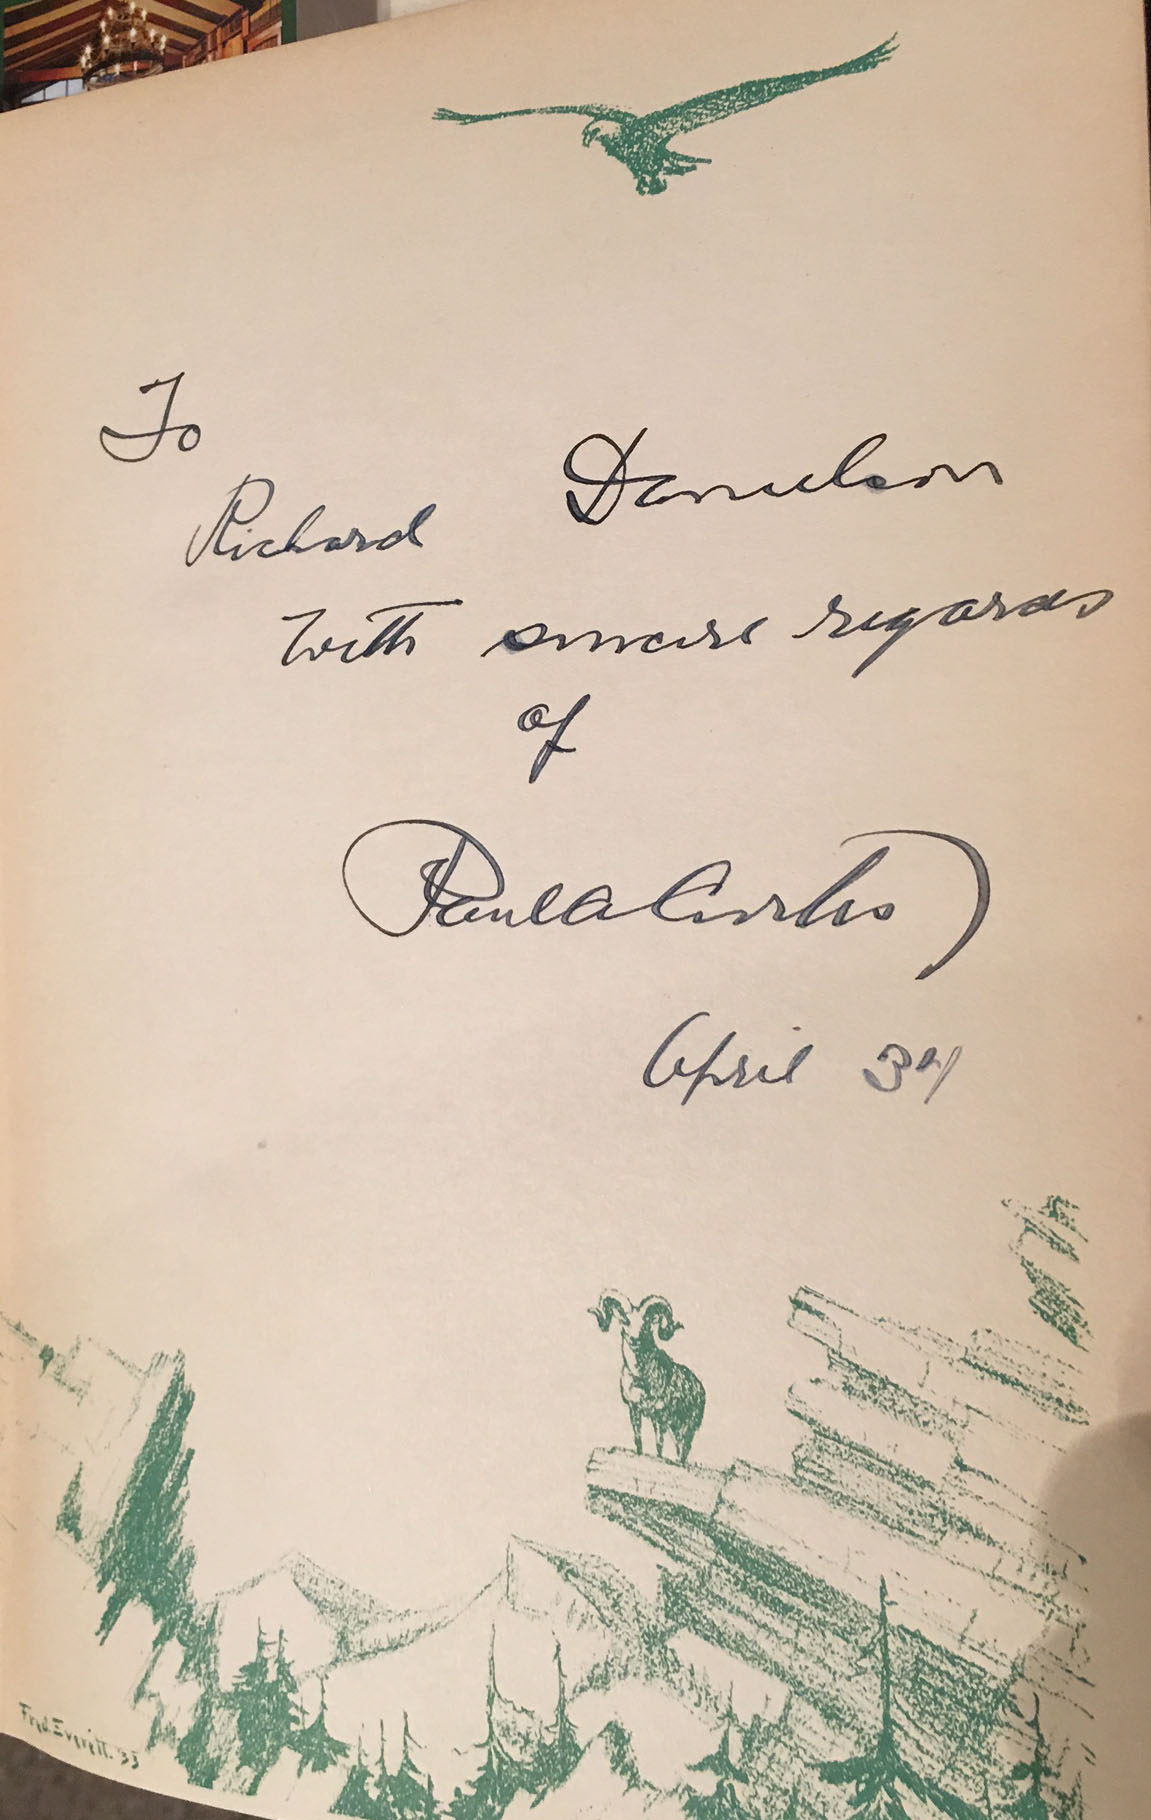 To
Richard Danielson
with sincere regards
of
Paul A Curtis
April 34
Fred. Everett. '33